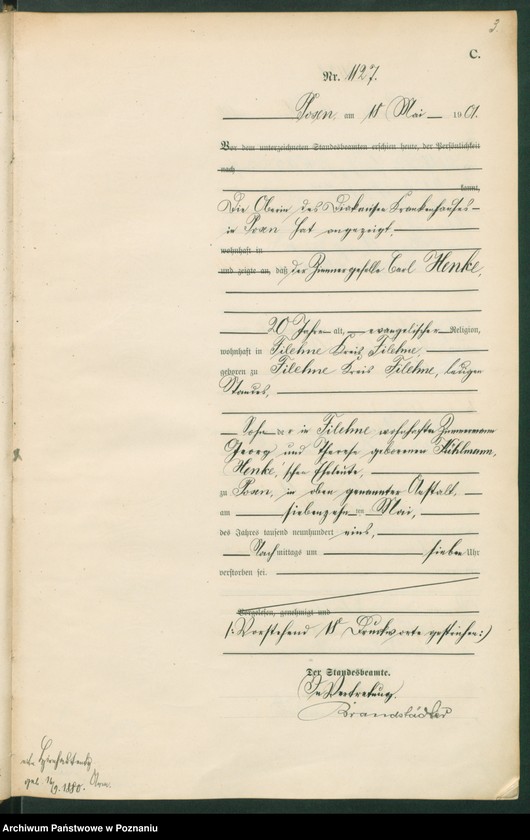 3.
C.
Nr. 1127.
Posen, am 18 Mai 1901.
Vor dem unterzeichneten Standesbeamten erschien heute, der Persönlichkeit
nach
kannt,
Die Oberin des Diakonissen Krankenhauses
in Posen hat angezeigt,
wohnhaft in
und zeigte an, daß der Zimmergeselle Carl Henke,
20 Jahre alt, evangelischer Religion,
wohnhaft in Filehne Kreis Filehne,
geboren zu Filehne Kreis Filehne, ledigen
Standes,
Sohn der in Filehne wohnhaften Zimmermann
Georg und Therese geborenen Kühlmann,
Henke'schen Eheleute,
zu Posen, in oben genannter Anstalt,
am siebenzehn ten Mai,
des Jahres tausend neunhundert eins,
Nach mittags um sieben Uhr
verstorben sei.
Vorgelesen, genehmigt und
/: Vorstehend 18 Druckworte gestrichen :/
Der Standesbeamte.
In Vertretung.
Brandstädter
geb. 1880.
Archiwum Państwowe w Poznaniu